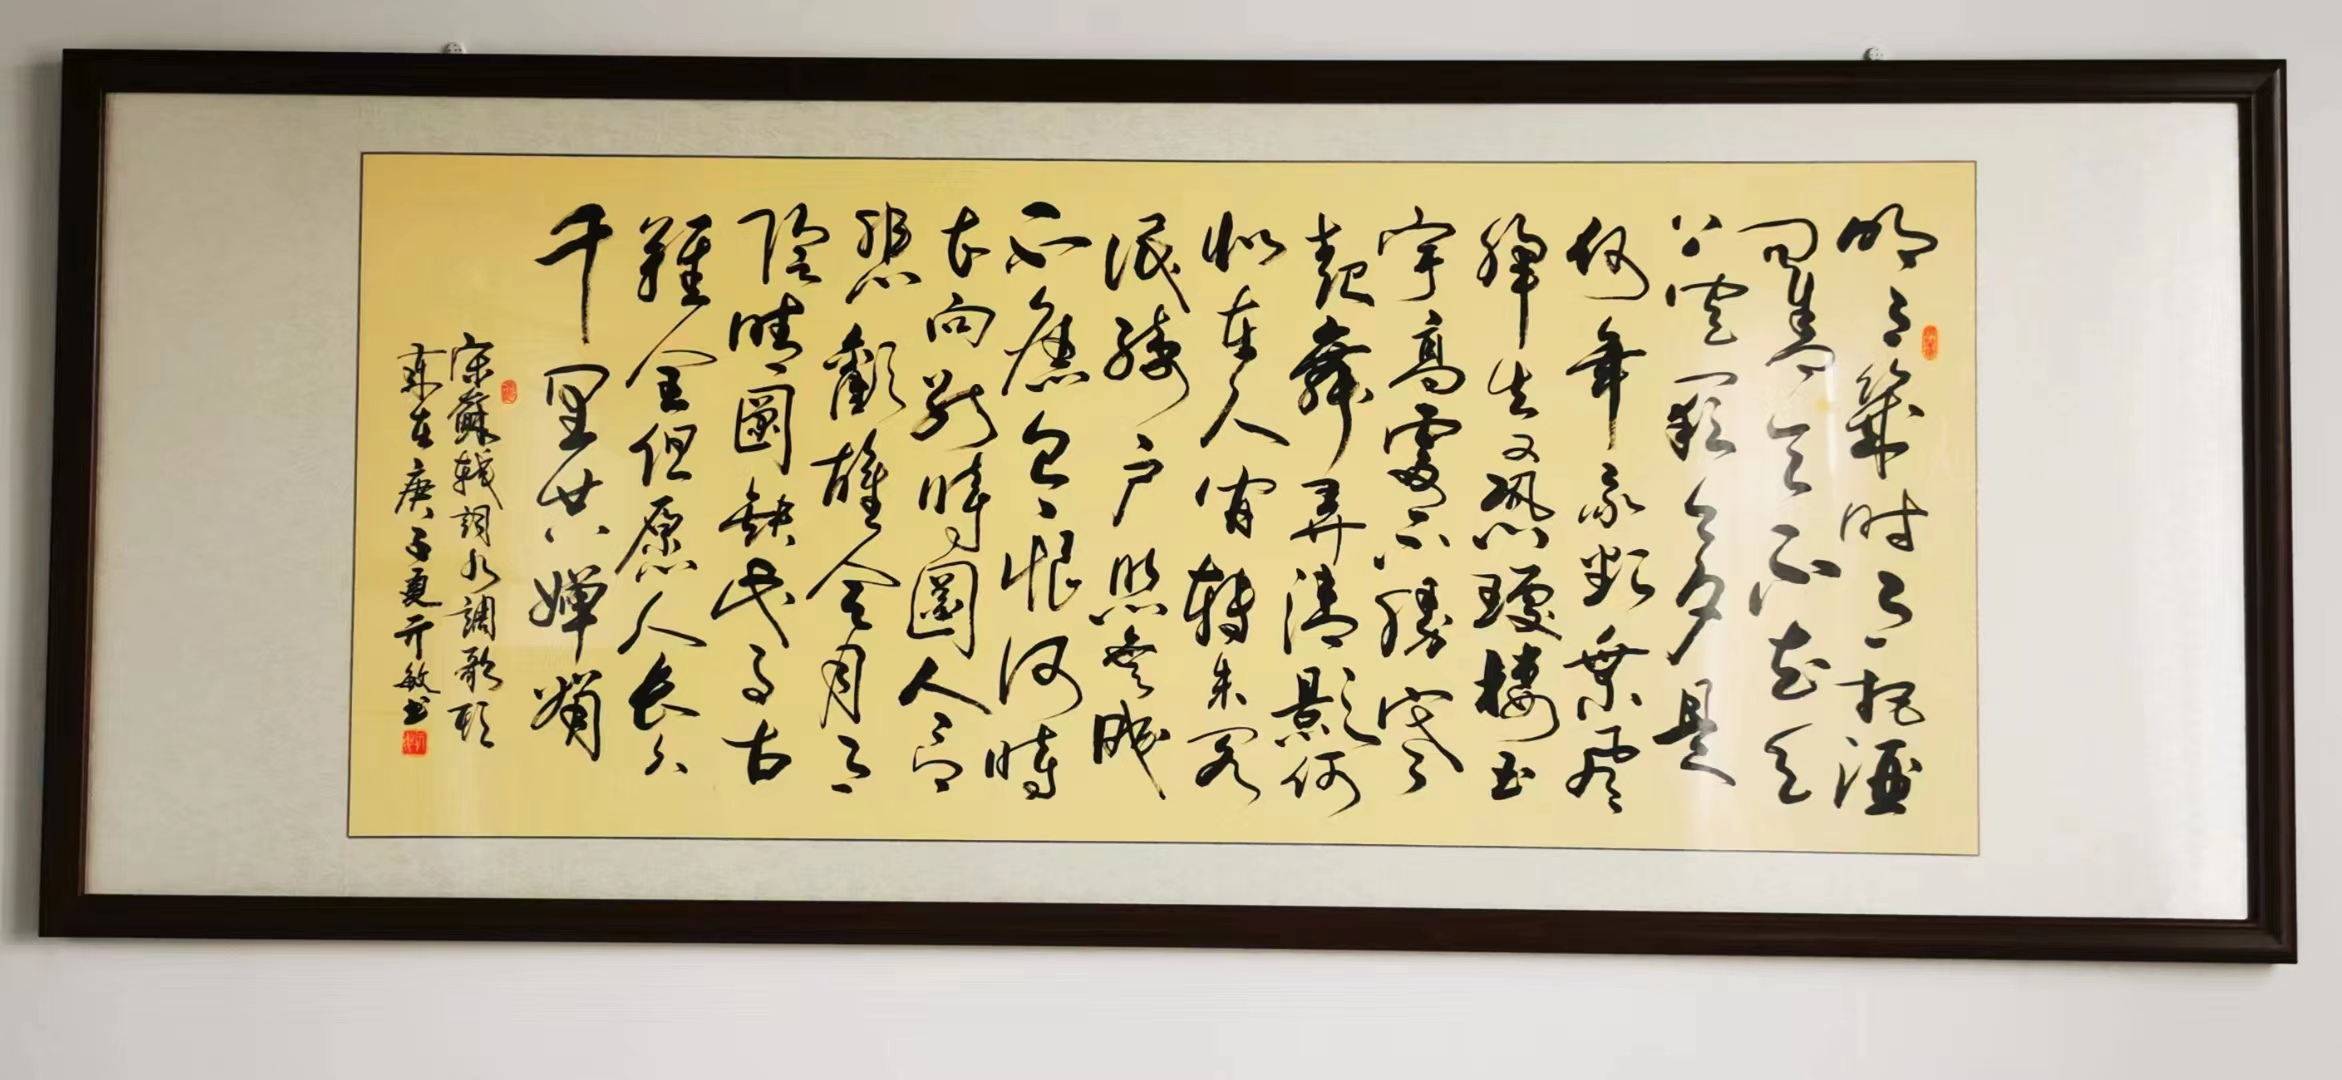 明月幾时有把酒
问青天不知天
上宫闕今夕是
何年我欲乘风
归去又恐瓊楼玉
宇高處不勝寒
起舞弄清影何
似在人间转朱阁
低绮户照無眠
不應有恨何時
长向别時圓人有
悲歡離合月有
陰晴圓缺此事古
難全但愿人长久
千里共婵娟
宋蘇轼詞水調歌頭
岁在庚子夏亓敏书